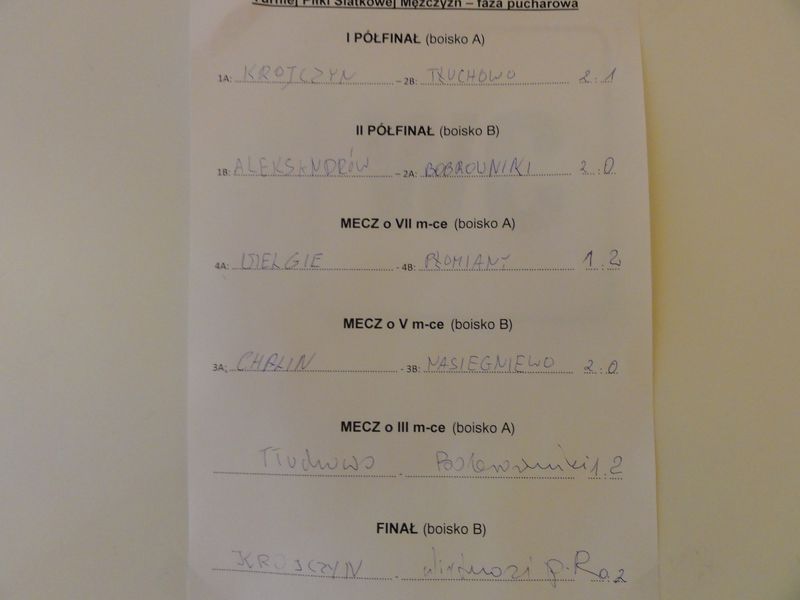 Turniej Piłki Siatkowej Mężczyzn – faza pucharowa
I PÓŁFINAŁ (boisko A)
1A: KROJCZYN – 2B: TŁUCHOWO 2:1
II PÓŁFINAŁ (boisko B)
1B: ALEKSANDRÓW – 2A: BOBROWNIKI 2:0
MECZ o VII m-ce (boisko A)
4A: WIELGIE - 4B: PŁOMIANY 1:2
MECZ o V m-ce (boisko B)
3A: CHALIN - 3B: NASIEGNIEWO 2:0
MECZ o III m-ce (boisko A)
Tłuchowo - Bobrowniki 1:2
FINAŁ (boisko B)
KROJCZYN -